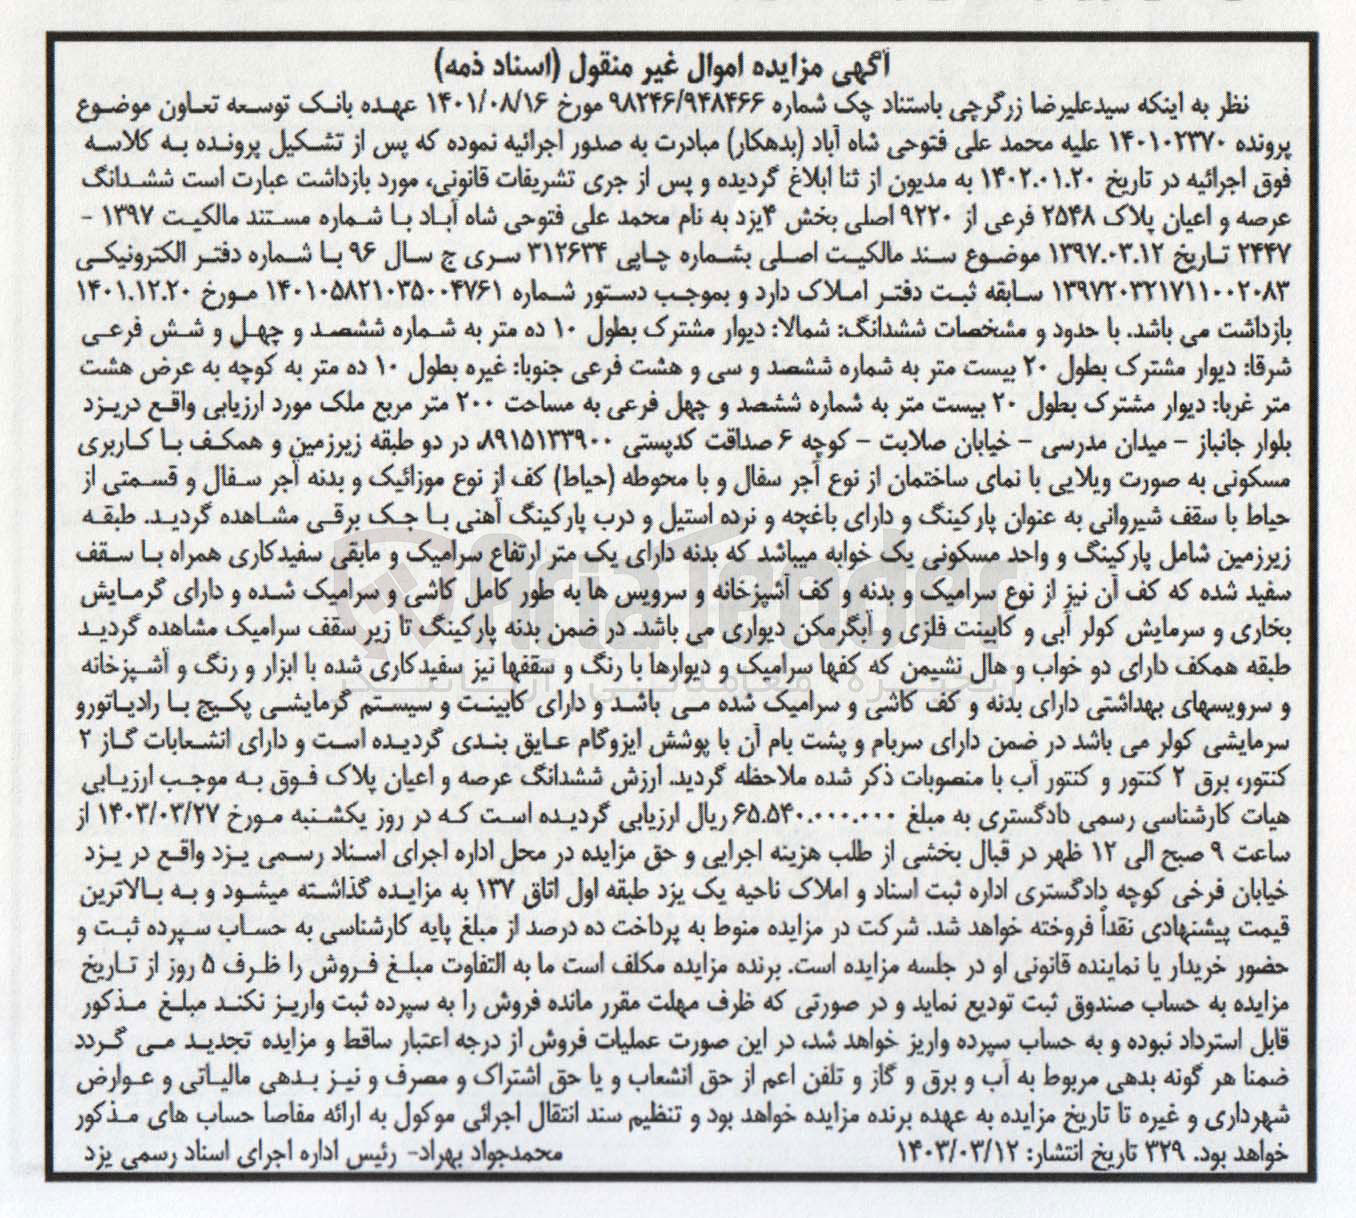 آگهی مزایده اموال غیر منقول (اسناد ذمه)
نظر به اینکه سیدعلیرضا زرگرچی باستناد چک شماره ۹۸۲۴۶/۹۴۸۴۶۶ مورخ ۱۴۰۱/۰۸/۱۶ عهده بانک توسعه تعاون موضوع
پرونده ۱۴۰۱۰۲۳۷۰ علیه محمد علی فتوحی شاه آباد (بدهکار) مبادرت به صدور اجرائیه نموده که پس از تشکیل پرونده به کلاسه
فوق اجرائیه در تاریخ ۱۴۰۲.۰۱.۲۰ به مدیون از ثنا ابلاغ گردیده و پس از جری تشریفات قانونی، مورد بازداشت عبارت است ششدانگ
عرصه و اعیان پلاک ۲۵۴۸ فرعی از ۹۲۲۰ اصلی بخش ۴یزد به نام محمد علی فتوحی شاه آباد با شماره مستند مالکیت ۱۳۹۷ -
۲۴۴۷ تاریخ ۱۳۹۷.۰۳.۱۲ موضوع سند مالکیت اصلی بشماره چاپی ۳۱۲۶۳۴ سری ج سال ۹۶ با شماره دفتر الکترونیکی
۱۳۹۷۲۰۳۲۱۷۱۱۰۰۲۰۸۳ سابقه ثبت دفتر املاک دارد و بموجب دستور شماره ۱۴۰۱۰۵۸۲۱۰۳۵۰۰۴۷۶۱ مورخ ۱۴۰۱.۱۲.۲۰
بازداشت می باشد. با حدود و مشخصات ششدانگ: شمالا: دیوار مشترک بطول ۱۰ ده متر به شماره ششصد و چهل و شش فرعی
شرقا: دیوار مشترک بطول ۲۰ بیست متر به شماره ششصد و سی و هشت فرعی جنوبا: غیره بطول ۱۰ ده متر به کوچه به عرض هشت
متر غربا: دیوار مشترک بطول ۲۰ بیست متر به شماره ششصد و چهل فرعی به مساحت ۲۰۰ متر مربع ملک مورد ارزیابی واقع دریزد
بلوار جانباز - میدان مدرسی - خیابان صلابت - کوچه ۶ صداقت کدپستی ۸۹۱۵۱۳۳۹۰۰، در دو طبقه زیرزمین و همکف با کاربری
مسکونی به صورت ویلایی با نمای ساختمان از نوع آجر سفال و با محوطه (حیاط) کف از نوع موزائیک و بدنه آجر سفال و قسمتی از
حیاط با سقف شیروانی به عنوان پارکینگ و دارای باغچه و نرده استیل و درب پارکینگ آهنی با جک برقی مشاهده گردید. طبقه
زیرزمین شامل پارکینگ و واحد مسکونی یک خوابه میباشد که بدنه دارای یک متر ارتفاع سرامیک و مابقی سفیدکاری همراه با سقف
سفید شده که کف آن نیز از نوع سرامیک و بدنه و کف آشپزخانه و سرویس ها به طور کامل کاشی و سرامیک شده و دارای گرمایش
بخاری و سرمایش کولر آبی و کابینت فلزی و آبگرمکن دیواری می باشد. در ضمن بدنه پارکینگ تا زیر سقف سرامیک مشاهده گردید
طبقه همکف دارای دو خواب و هال نشیمن که کفها سرامیک و دیوارها با رنگ و سقفها نیز سفیدکاری شده با ابزار و رنگ و آشپزخانه
و سرویسهای بهداشتی دارای بدنه و کف کاشی و سرامیک شده می باشد و دارای کابینت و سیستم گرمایشی پکیج با رادیاتورو
سرمایشی کولر می باشد در ضمن دارای سربام و پشت بام آن با پوشش ایزوگام عایق بندی گردیده است و دارای انشعابات گاز ۲
کنتور، برق ۲ کنتور و کنتور آب با منصوبات ذکر شده ملاحظه گردید. ارزش ششدانگ عرصه و اعیان پلاک فوق به موجب ارزیابی
هیات کارشناسی رسمی دادگستری به مبلغ ۶۵.۵۴۰.۰۰۰.۰۰۰ ریال ارزیابی گردیده است که در روز یکشنبه مورخ ۱۴۰۳/۰۳/۲۷ از
ساعت ۹ صبح الی ۱۲ ظهر در قبال بخشی از طلب هزینه اجرایی و حق مزایده در محل اداره اجرای اسناد رسمی یزد واقع در یزد
خیابان فرخی کوچه دادگستری اداره ثبت اسناد و املاک ناحیه یک یزد طبقه اول اتاق ۱۳۷ به مزایده گذاشته میشود و به بالاترین
قیمت پیشنهادی نقداً فروخته خواهد شد. شرکت در مزایده منوط به پرداخت ده درصد از مبلغ پایه کارشناسی به حساب سپرده ثبت و
حضور خریدار یا نماینده قانونی او در جلسه مزایده است. برنده مزایده مکلف است ما به التفاوت مبلغ فروش را ظرف ۵ روز از تاریخ
مزایده به حساب صندوق ثبت تودیع نماید و در صورتی که ظرف مهلت مقرر مانده فروش را به سپرده ثبت واریز نکند مبلغ مذکور
قابل استرداد نبوده و به حساب سپرده واریز خواهد شد، در این صورت عملیات فروش از درجه اعتبار ساقط و مزایده تجدید می گردد
ضمنا هر گونه بدهی مربوط به آب و برق و گاز و تلفن اعم از حق انشعاب و یا حق اشتراک و مصرف و نیز بدهی مالیاتی و عوارض
شهرداری و غیره تا تاریخ مزایده به عهده برنده مزایده خواهد بود و تنظیم سند انتقال اجرائی موکول به ارائه مفاصا حساب های مذکور
خواهد بود. ۳۲۹ تاریخ انتشار: ۱۴۰۳/۰۳/۱۲ محمدجواد بهراد- رئیس اداره اجرای اسناد رسمی یزد
AriaTender